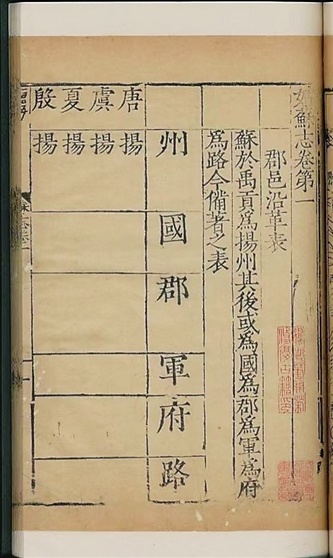 姑蘇志卷第一
郡邑沿革表
蘇於禹貢爲揚州其後或爲國爲郡爲軍爲府
爲路今備著之表
州 國 郡 軍 府 路
唐 揚
虞 揚
夏 揚
殷 揚